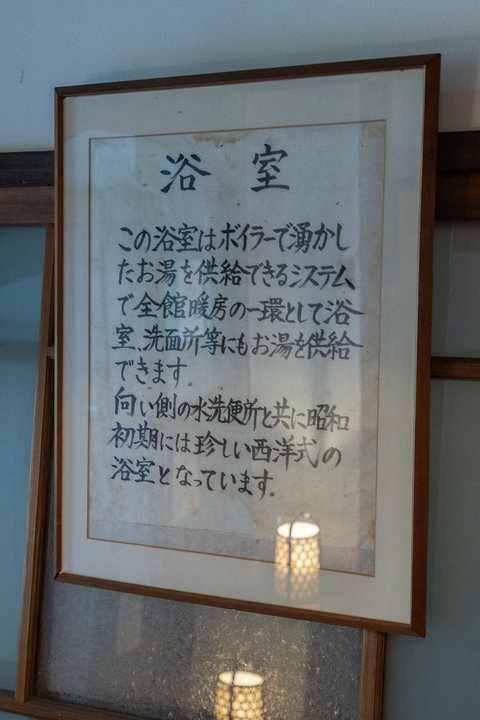 浴室
この浴室はボイラーで湧かし
たお湯を供給できるシステム
で全館暖房の一環として浴
室、洗面所等にもお湯を供給
できます。
向い側の水洗便所と共に昭和
初期には珍しい西洋式の
浴室となっています。